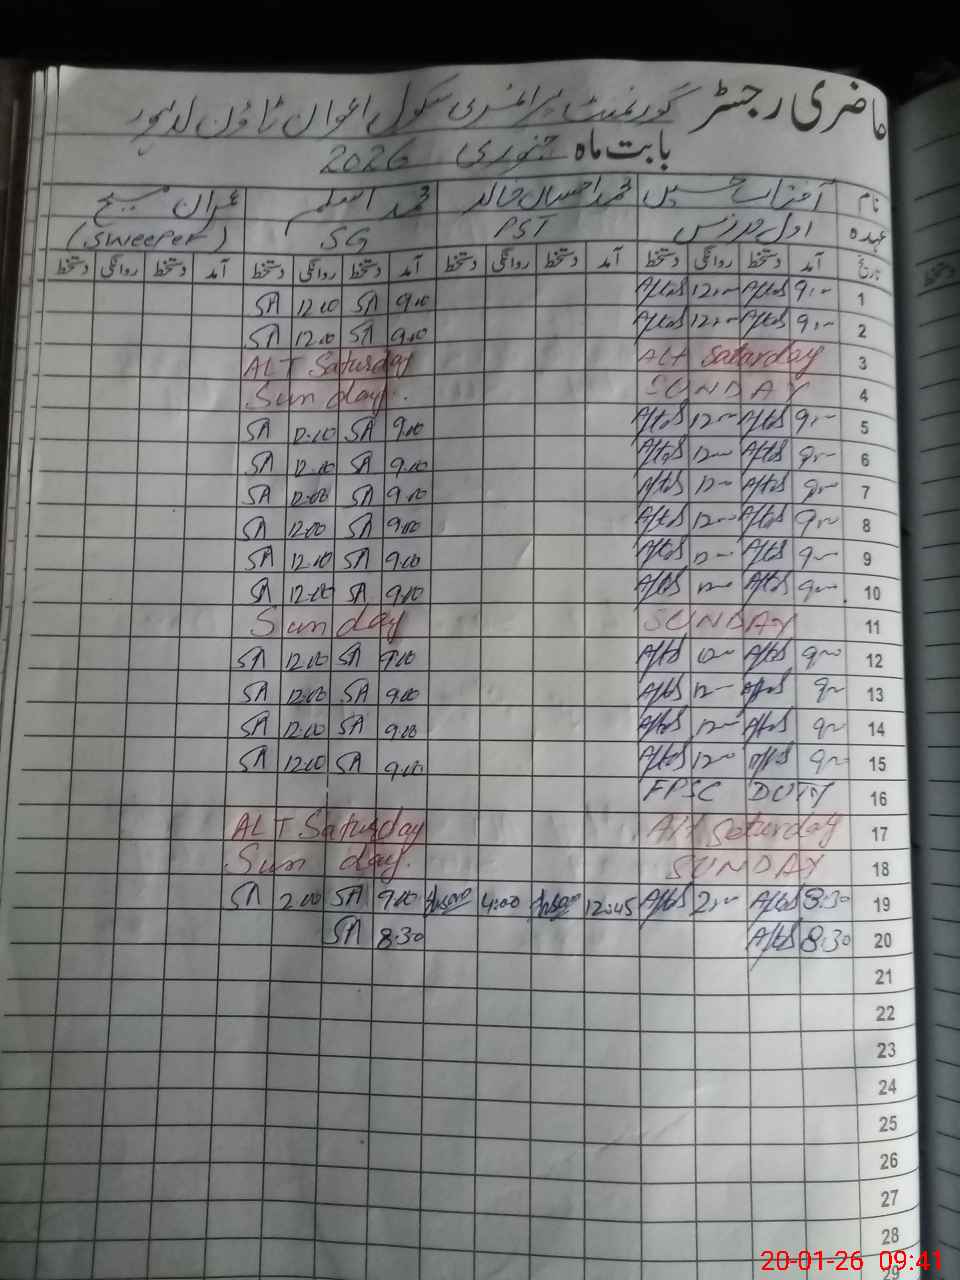 حاضری رجسٹر گورنمنٹ پرائمری سکول اعوان ٹاؤن لاہور
بابت ماہ جنوری 2026
نام آفتاب حسین محمد احسان خالد محمد اسلم عمران مسیح
عہدہ اول مدرس PST SG (Sweeper)
تاریخ آمد دستخط روانگی دستخط آمد دستخط روانگی دستخط آمد دستخط روانگی دستخط آمد دستخط روانگی دستخط
1 9:00 Aftab 12:00 Aftab 9:00 SA 12:00 SA
2 9:00 Aftab 12:00 Aftab 9:00 SA 12:00 SA
3 ALT Saturday ALT Saturday
4 SUNDAY Sunday
5 9:00 Aftab 12:00 Aftab 9:00 SA 12:00 SA
6 9:00 Aftab 12:00 Aftab 9:00 SA 12:00 SA
7 9:00 Aftab 12:00 Aftab 9:00 SA 12:00 SA
8 9:00 Aftab 12:00 Aftab 9:00 SA 12:00 SA
9 9:00 Aftab 12:00 Aftab 9:00 SA 12:00 SA
10 9:00 Aftab 12:00 Aftab 9:00 SA 12:00 SA
11 SUNDAY Sunday
12 9:00 Aftab 12:00 Aftab 9:00 SA 12:00 SA
13 9:00 Aftab 12:00 Aftab 9:00 SA 12:00 SA
14 9:00 Aftab 12:00 Aftab 9:00 SA 12:00 SA
15 9:00 Aftab 12:00 Aftab 9:00 SA 12:00 SA
16 FPSC DUTY
17 Alt Saturday ALT Saturday
18 SUNDAY Sunday.
19 8:30 Aftab 2:00 Aftab 12:45 4:00 9:00 SA 2:00 SA
20 8:30 Aftab 8:30 SA
21
22
23
24
25
26
27
28
29
20-01-26 09:41